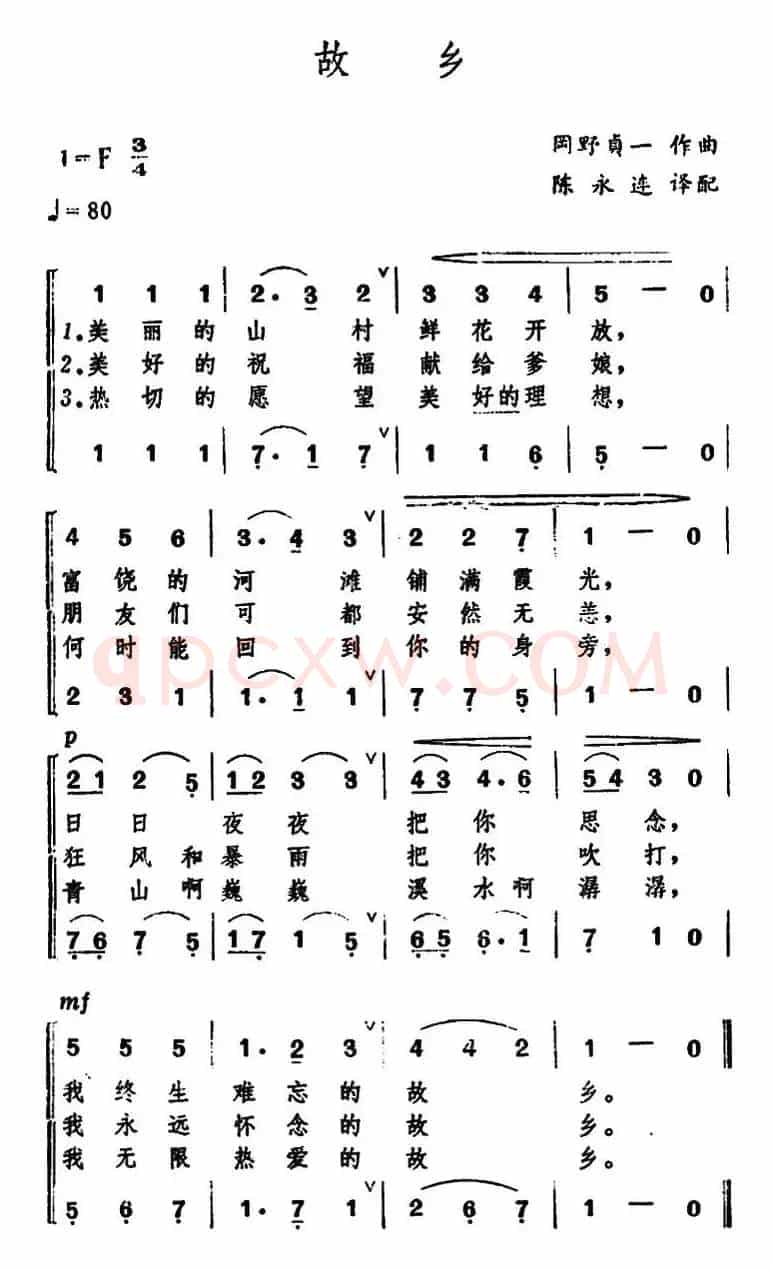 故 乡
1=F 3/4
岡野貞一 作曲
陈永连 译配
♩=80
1 1 1 | 2. 3 2 ∨ | 3 3 4 | 5 — 0
1.美丽的山村鲜花开放,
2.美好的祝福献给爹娘,
3.热切的愿望美好的理想,
1 1 1 | 7. 1 7 ∨ | 1 1 6 | 5 — 0
4 5 6 | 3. 4 3 ∨ | 2 2 7 | 1 — 0
富饶的河滩铺满霞光,
朋友们可都安然无恙,
何时能回到你的身旁,
qpcxw.COM
2 3 1 | 1. 1 1 ∨ | 7 7 5 | 1 — 0
p
21 2 5 | 12 3 3 ∨ | 43 4. 6 | 54 3 0
日日夜夜把你思念,
狂风和暴雨把你吹打,
青山啊巍巍溪水啊潺潺,
76 7 5 | 17 1 5 ∨ | 65 6. 1 | 7 1 0
mf
5 5 5 | 1. 2 3 ∨ | 4 4 2 | 1 — 0
我终生难忘的故乡。
我永远怀念的故乡。
我无限热爱的故乡。
5 6 7 | 1. 7 1 ∨ | 2 6 7 | 1 — 0